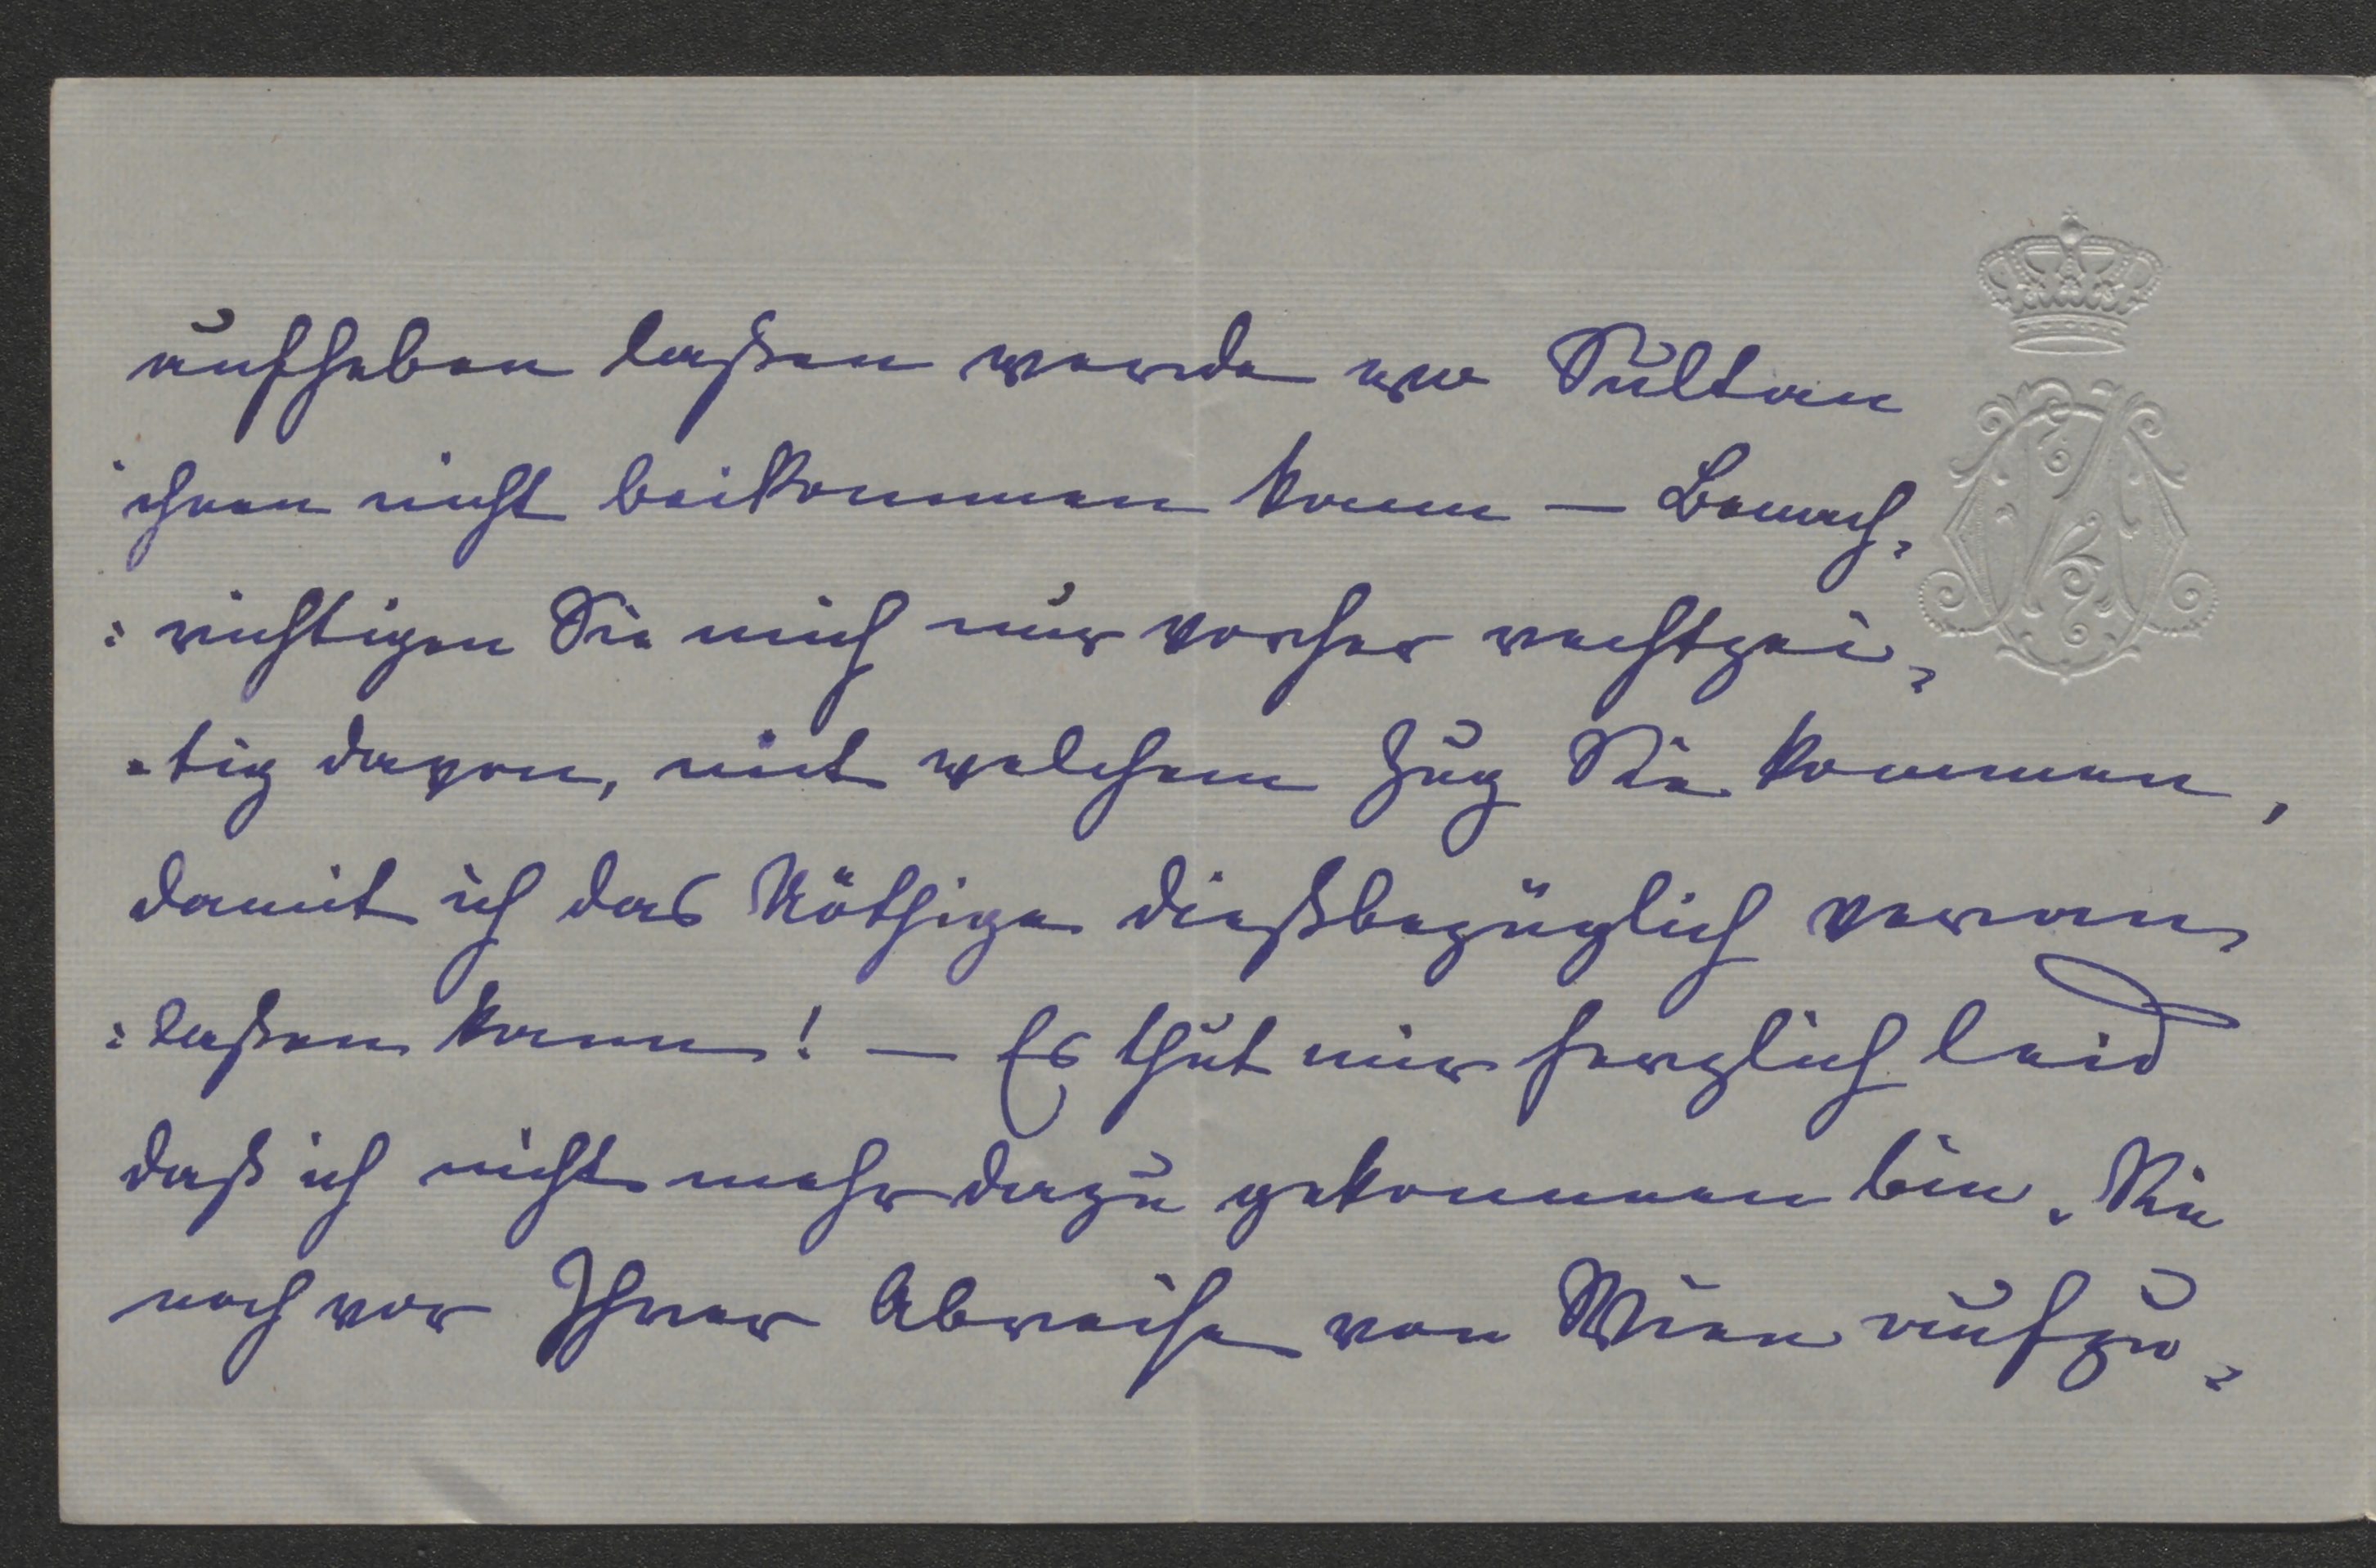 aufheben laßen werde wo Sultan
ihnen nicht beikommen kann – Benach-
:richtigen Sie mich nur vorher rechtzei-
-tig davon, mit welchem Zug Sie kommen,
damit ich das Nöthige dießbezüglich veran-
:laßen kann! – Es thut mir herzlich leid
daß ich nicht mehr dazu gekommen bin, Sie
noch vor Ihrer Abreise von Wien aufzu-